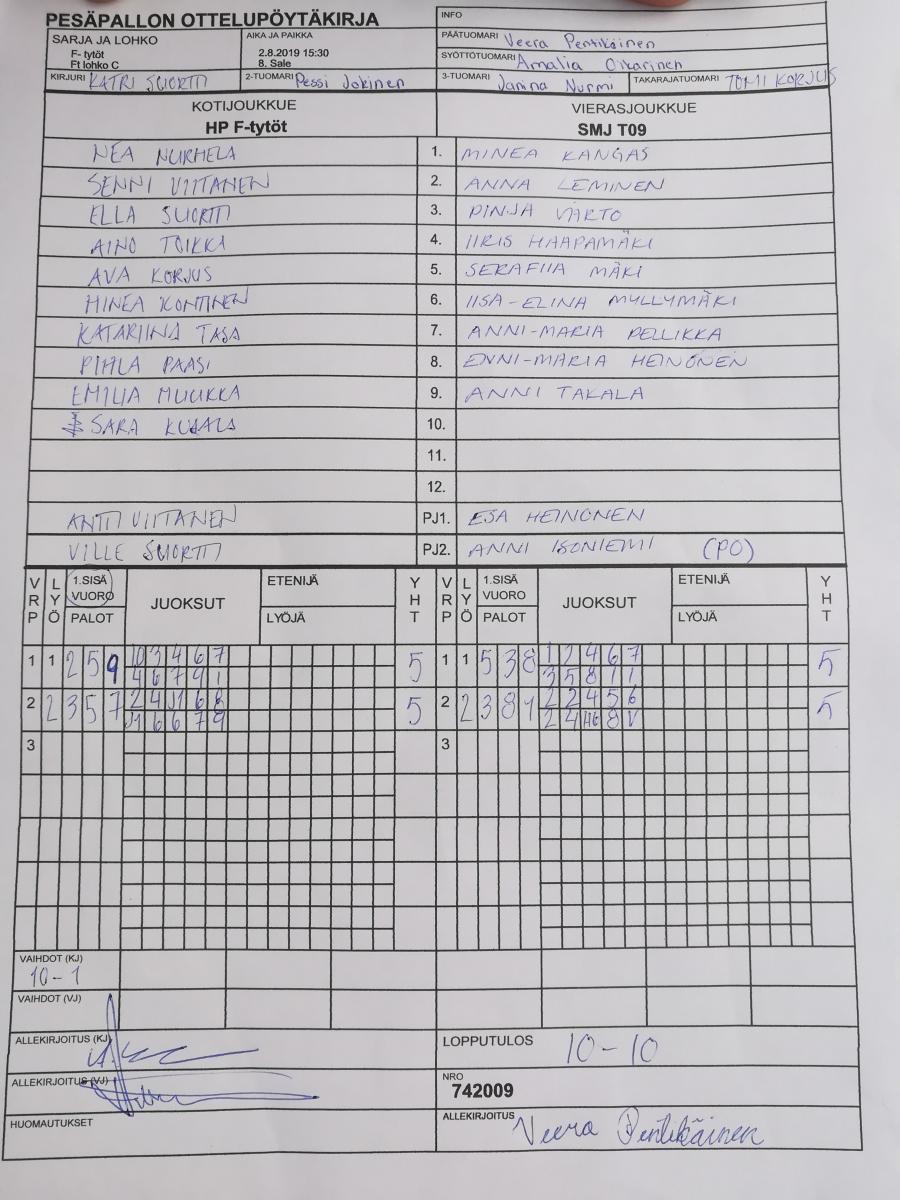 PESÄPALLON OTTELUPÖYTÄKIRJA
INFO
SARJA JA LOHKO
F- tytöt
Ft lohko C
AIKA JA PAIKKA
2.8.2019 15:30
8. Sale
PÄÄTUOMARI Veera Pentikäinen
SYÖTTÖTUOMARI Amalia Oikarinen
KIRJURI KATRI SUORTTI
2-TUOMARI Pessi Jokinen
3-TUOMARI Janina Nurmi
TAKARAJATUOMARI TOMI KORJUS
KOTIJOUKKUE
HP F-tytöt
VIERASJOUKKUE
SMJ T09
NEA NURMELA 1. MINEA KANGAS
SENNI VIITANEN 2. ANNA LEMINEN
ELLA SUORTTI 3. PINJA VARTO
AINO TOIKKA 4. IIRIS HAAPAMÄKI
AVA KORJUS 5. SERAFIIA MÄKI
MINEA KONTINEN 6. IISA-ELINA MYLLYMÄKI
KATARIINA TASA 7. ANNI-MARIA PELLIKKA
PIHLA PAASI 8. ENNI-MARIA HEINONEN
EMILIA MUUKKA 9. ANNI TAKALA
SARA 10.
11.
12.
ANTTI VIITANEN PJ1. ESA HEINONEN
VILLE SUORTTI PJ2. ANNI ISONIEMI (PO)
VRP LYÖ 1.SISÄ VUORO PALOT JUOKSUT ETENIJÄ LYÖJÄ YHT VRP LYÖ 1.SISÄ VUORO PALOT JUOKSUT ETENIJÄ LYÖJÄ YHT
1 1 2 5 9 10 3 4 6 7 5 1 1 5 3 8 1 2 4 6 7 5
4 6 7 9 1 3 5 8 1 1
2 2 3 5 7 2 4 J1 6 8 5 2 2 3 8 1 2 2 4 5 6 5
J1 6 6 7 9 2 4 H6 8 V
3 3
VAIHDOT (KJ)
10-1
VAIHDOT (VJ)
ALLEKIRJOITUS (KJ)
LOPPUTULOS 10-10
ALLEKIRJOITUS (VJ)
NRO
742009
HUOMAUTUKSET
ALLEKIRJOITUS Veera Pentikäinen